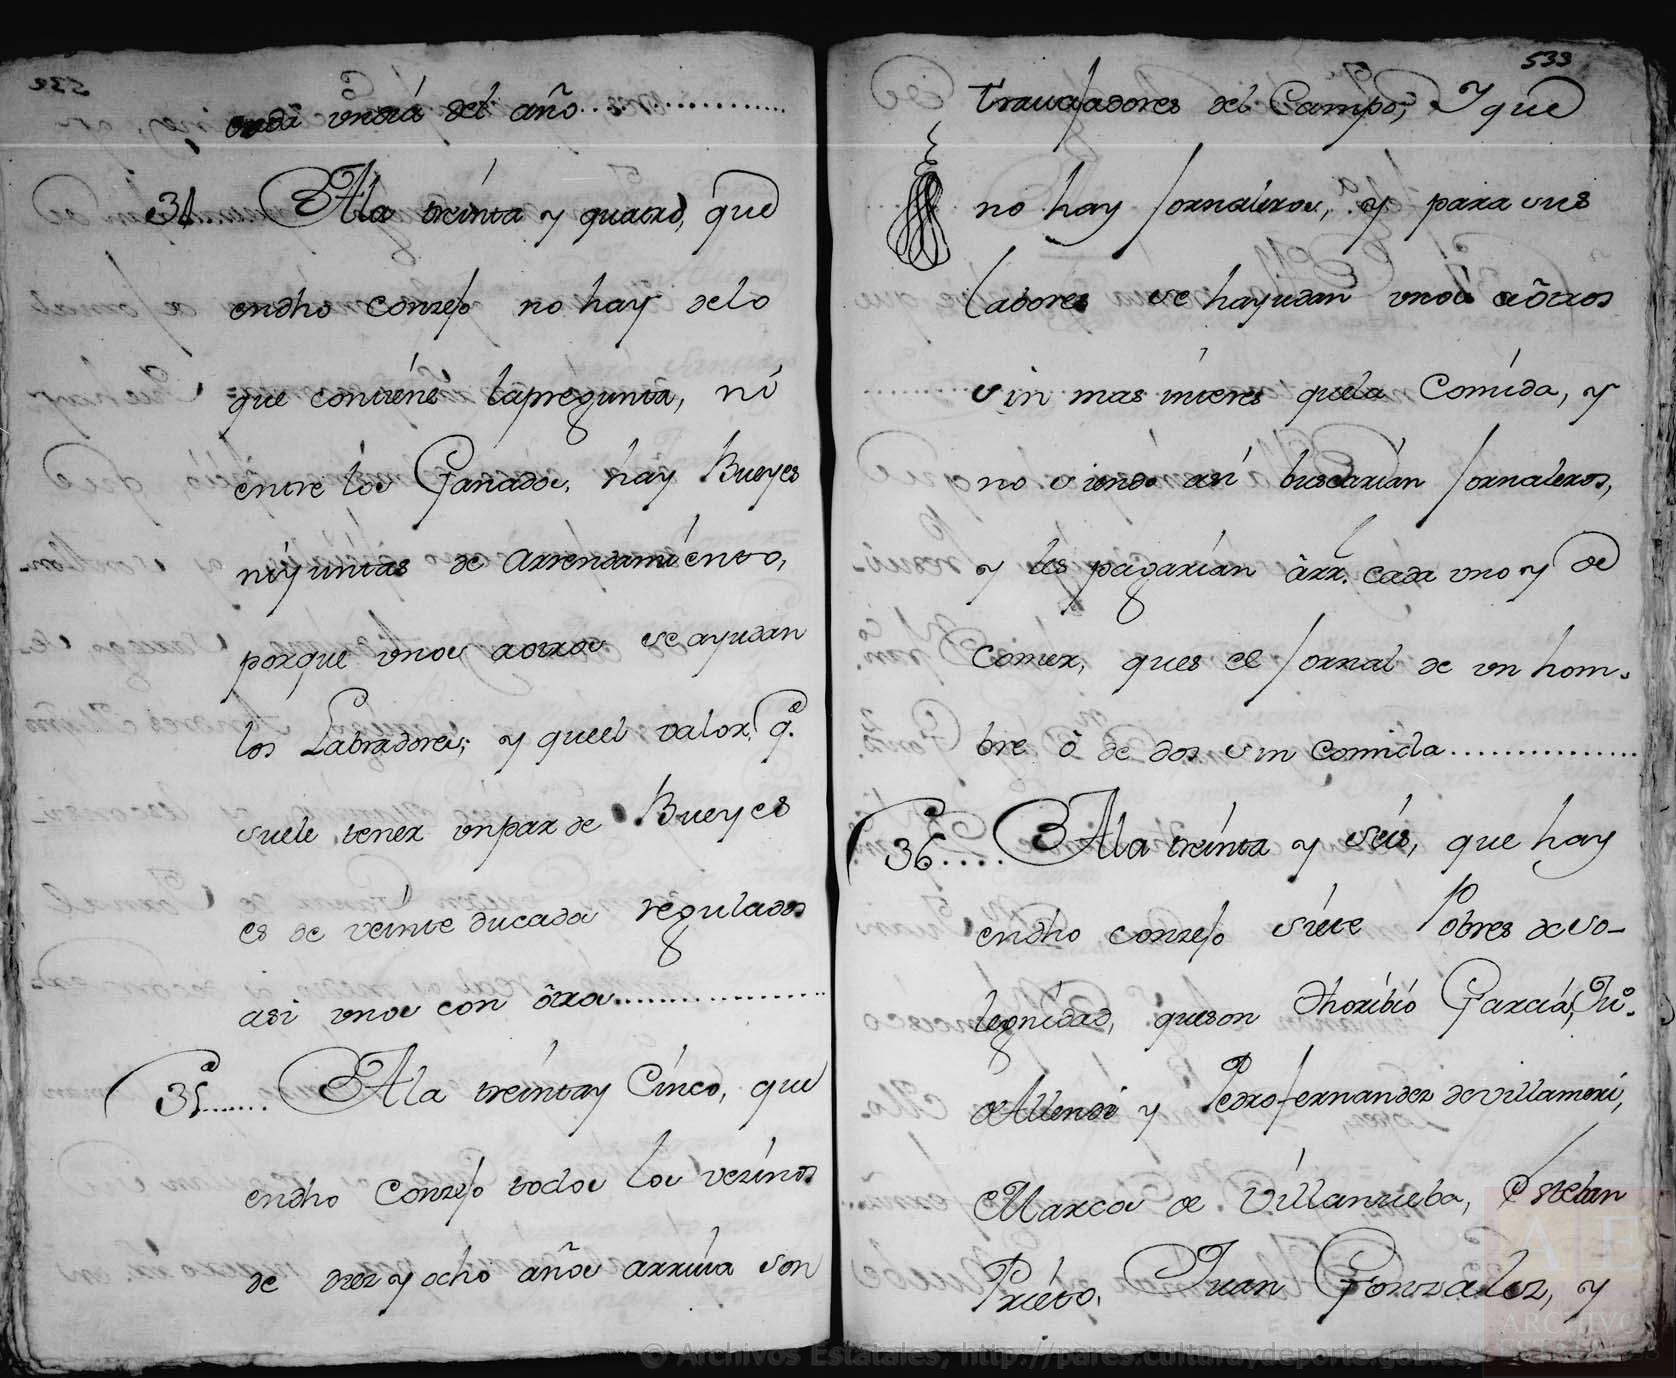 cada vno dia del año
34 A la treinta y quatro, que
endho conzejo no hay delo
que contiene lapregunta, ni
entre los Ganados, hay Bueyes
niyuntas de Arrendamiento,
porque vnos aotros se ayudan
los Labradores; y queel valor, q.e
suele tener vnpar de Bueyes
es de veinte ducados regulados
asi vnos con otros
35.a A la treintay Cinco, que
endho Conzejo todos los vezinos
de diez y ocho años arriva son
533
travajadores del Campo, Y que
no hay Jornaleros, y para sus
Labores se hayudan vnos aôtros
sin mas interes quela Comida, y
no siendo asi buscarian Jornaleros,
y les pagarian à rr.l cada vno y de
Comer, ques el Jornal de vn hom-
bre ô de dos sin comida
36.a A la treinta y seis, que hay
endho conzejo siete Pobres deso-
legnidad, queson Thoribio Garcia, Ju.o
Allende y Pedro fernandez devillameri,
Marcos de Villanueba, Esteban
Prieto, Juan Gonzalez, y
© Archivos Estatales, http://pares.culturaydeporte.gob.es